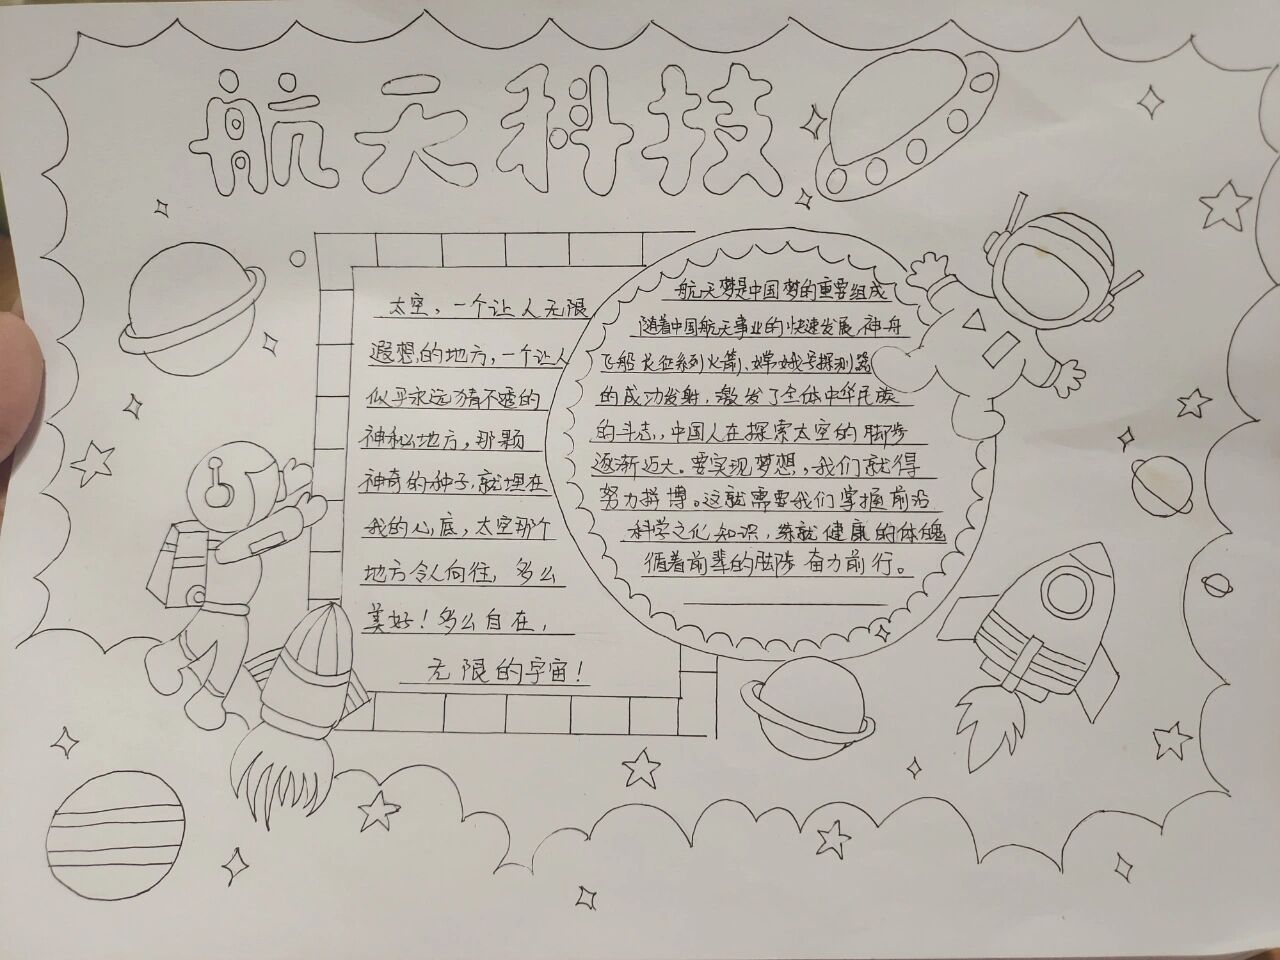 航天科技
太空，一个让人无限
遐想的地方，一个让人
似乎永远猜不透的
神秘地方，那颗
神奇的种子，就埋在
我的心底，太空那个
地方令人向往，多么
美好！多么自在，
无限的宇宙！
航天梦是中国梦的重要组成
随着中国航天事业的快速发展，神舟
飞船长征系列火箭、嫦娥号探测器
的成功发射，激发了全体中华民族
的斗志，中国人在探索太空的脚步
逐渐迈大。要实现梦想，我们就得
努力拼博。这就需要我们掌握前沿
科学文化知识，练就健康的体魄
循着前辈的脚步奋力前行。